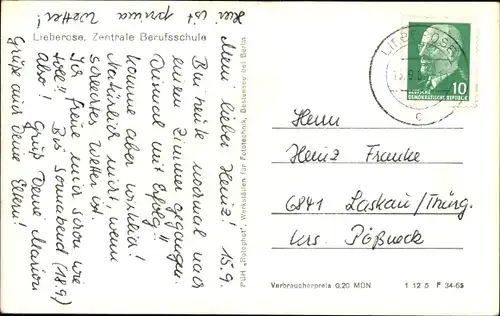 Hier ist prima
Wetter!
Lieberose, Zentrale Berufsschule
Mein lieber Heinz! 15.9.
Bin heute nochmal nach
einem Zimmer gegangen.
Diesmal mit Erfolg!!
Komme aber wirklich!
Natürlich nicht, wenn
schlechtes Wetter ist.
Ich freue mich schon wie
toll!! Bis Sonnabend (18.9)
also! Gruß Deine Marion
Grüße an Deine Eltern!
PGH „Rotophot", Werkstätten für Fototechnik, Bestensee bei Berlin
LIEBEROSE
c
DEUTSCHE
DEMOKRATISCHE REPUBLIK
10
Herrn
Heinz Franke
6841 Laskau/Thürg.
Krs. Pößneck
Verbraucherpreis 0.20 MDN
1 12 5 F 34-65